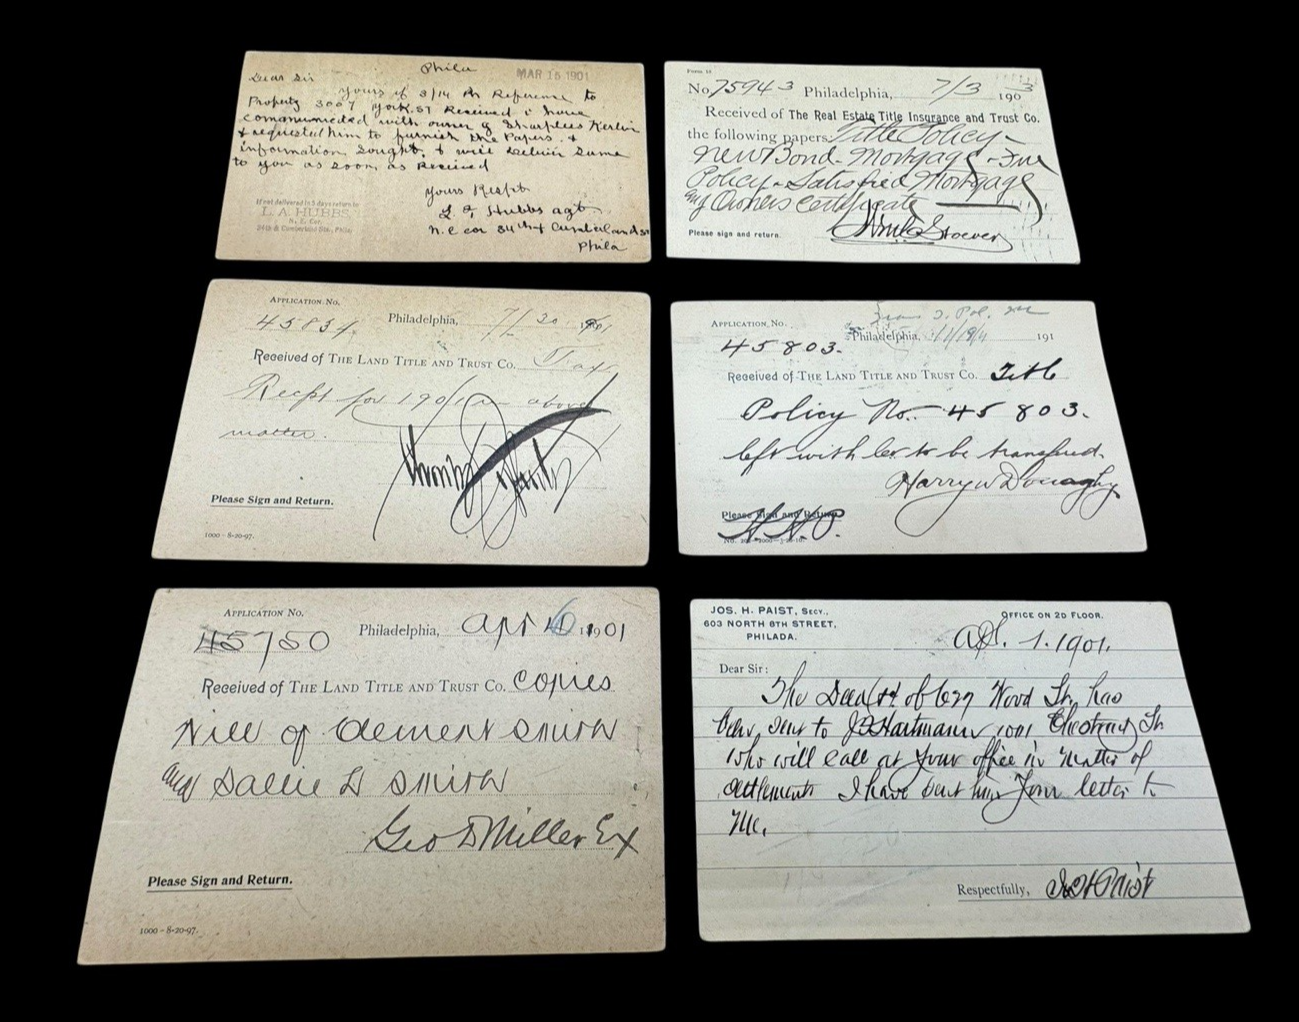 Phila MAR 16 1901
Dear Sir
Yours of 3/14 in Reference to
Property 3007 York St Received & have
communicated with owner
& requested him to furnish the Papers &
information sought & will deliver same
to you as soon as Received
Yours Respt
L A Hubbs agt
N.E cor 34th & Cumberland St
Phila
If not delivered in 5 days return to
L. A. HUBBS,
N. E. Cor.
34th & Cumberland Sts., Phila.
Form 18
No. 75943 Philadelphia, 7/3 1903
Received of The Real Estate Title Insurance and Trust Co.
the following papers Title Policy -
New Bond - Mortgage - Fire
Policy - Satisfied Mortgage
and Owners Certificate
Please sign and return.
APPLICATION NO.
45834 Philadelphia, 7/20 1901
Received of THE LAND TITLE AND TRUST CO. Tax
Receipt for 1901 in above
matter.
Please Sign and Return.
1000 - 8-20-97.
APPLICATION NO.
45803. Philadelphia, 191
Received of THE LAND TITLE AND TRUST CO. Title
Policy No. 45803.
left with Co to be transfered.
Harry W Donaghy
Please Sign and Return.
H.H.P.
APPLICATION NO.
45750 Philadelphia, Apr 1901
Received of THE LAND TITLE AND TRUST CO. copies
Will of Clement Smith
and Sallie D Smith
Geo D Miller Ex
Please Sign and Return.
1000 - 8-20-97.
JOS. H. PAIST, SECY.,
603 NORTH 8TH STREET,
PHILADA.
OFFICE ON 2D FLOOR.
Ap. 1. 1901.
Dear Sir:
The Deed of Wood St. has
been sent to Hartmann 1011 Chestnut St
who will call at your office in matter of
settlement I have sent him your letter to
me.
Respectfully, J H Paist